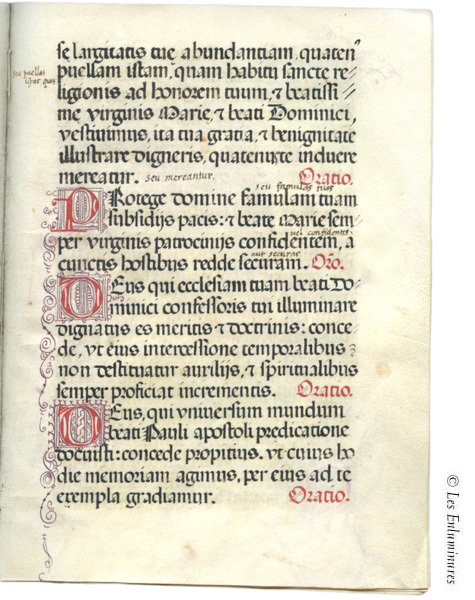 se largitatis tue abundantiam, quaten⁹
seu puellas
istas quas
puellam istam, quam habitu sancte re-
ligionis ad honorem tuum, & beatissi-
me virginis Marie, & beati Dominici,
vestiuimus, ita tua gratia, & benignitate
illustrare digneris, quatenus te induere
mereatur. seu mereantur. Oratio.
seu famulas tuas
PRotege domine famulam tuam
subsidijs pacis: & beate Marie sem-
vel confidentes
per virginis patrocinijs confidentem, a
aut securas
cunctis hostibus redde securam. Oro.
DEus qui ecclesiam tuam beati Do-
minici confessoris tui illuminare
dignatus es meritis & doctrinis: conce-
de, vt eius intercessione temporalibus
non destituatur auxilijs, & spiritualibus
semper proficiat incrementis. Oratio.
DEus, qui vniuersum mundum
beati Pauli apostoli predicatione
docuisti: concede propitius. vt cuius ho
die memoriam agimus, per eius ad te
exempla gradiamur. Oratio.
© Les Enluminures